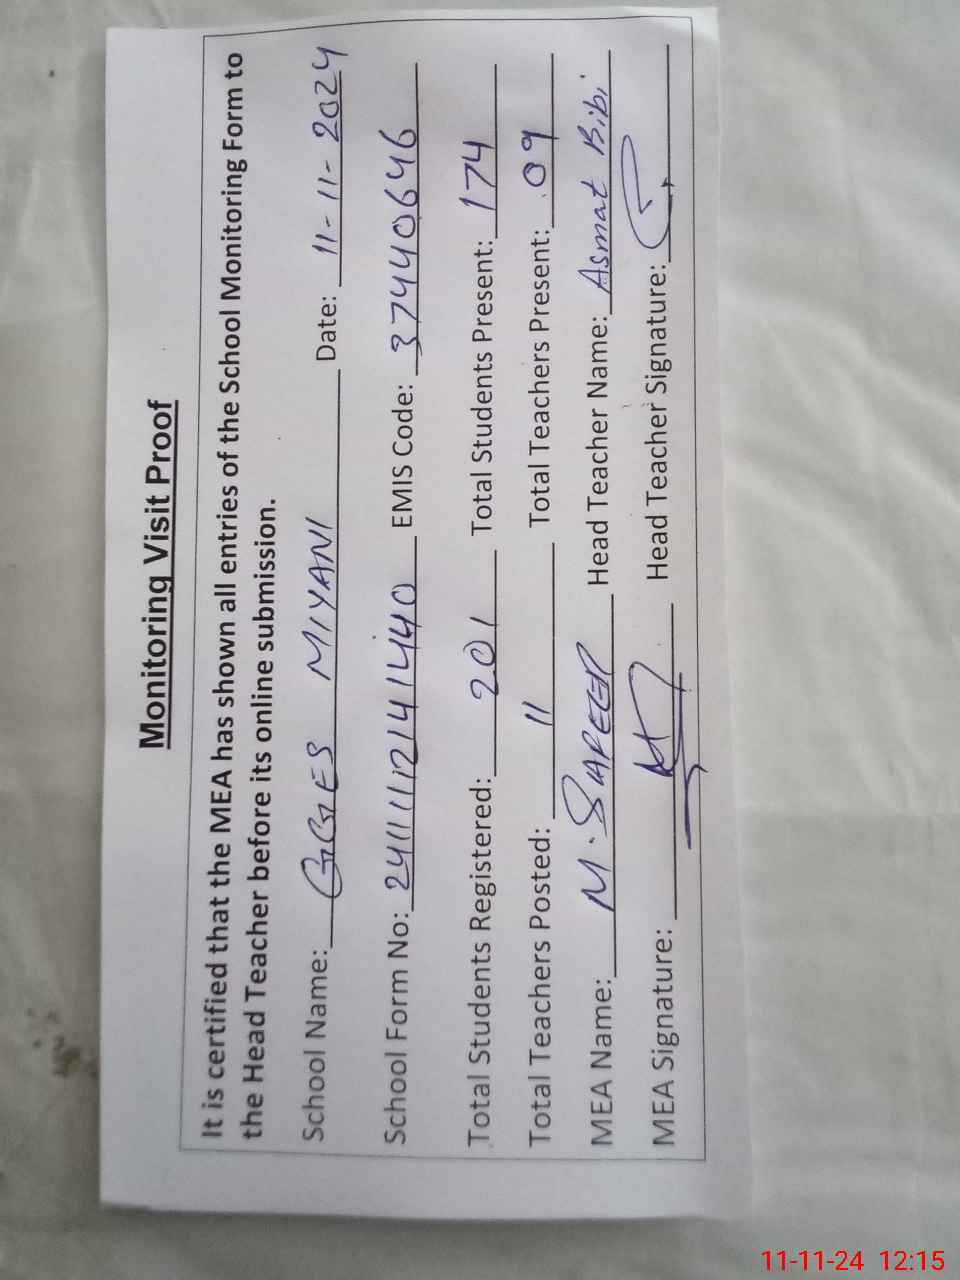 Monitoring Visit Proof
It is certified that the MEA has shown all entries of the School Monitoring Form to
the Head Teacher before its online submission.
School Name: GGES MIYANI Date: 11-11-2024
School Form No: 24111112141440 EMIS Code: 37440646
Total Students Registered: 201 Total Students Present: 174
Total Teachers Posted: 11 Total Teachers Present: 09
MEA Name: M. Head Teacher Name: Asmat Bibi
MEA Signature: Head Teacher Signature:
11-11-24 12:15